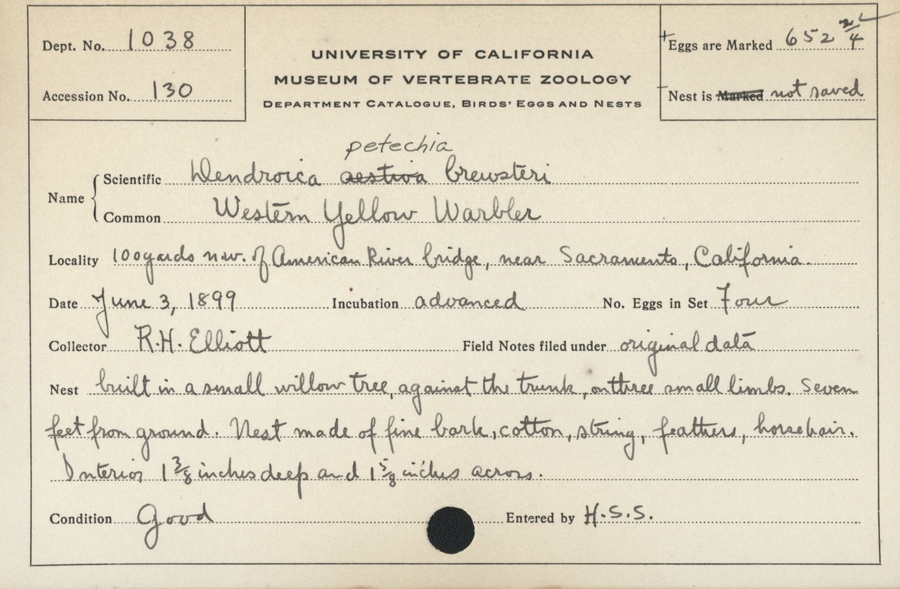 Dept. No. 1038
Accession No. 130
UNIVERSITY OF CALIFORNIA
MUSEUM OF VERTEBRATE ZOOLOGY
DEPARTMENT CATALOGUE, BIRDS' EGGS AND NESTS
Eggs are Marked 652 2/4
Nest is Marked not saved
petechia
Name
Scientific Dendroica aestiva brewsteri
Common Western Yellow Warbler
Locality 100 yards n.w. of American River bridge, near Sacramento, California.
Date June 3, 1899 Incubation advanced No. Eggs in Set Four
Collector R.H. Elliott Field Notes filed under original data
Nest built in a small willow tree, against the trunk, on three small limbs. Seven
feet from ground. Nest made of fine bark, cotton, string, feathers, horsehair.
Interior 1 3/8 inches deep and 1 5/8 inches across.
Condition Good Entered by H.S.S.